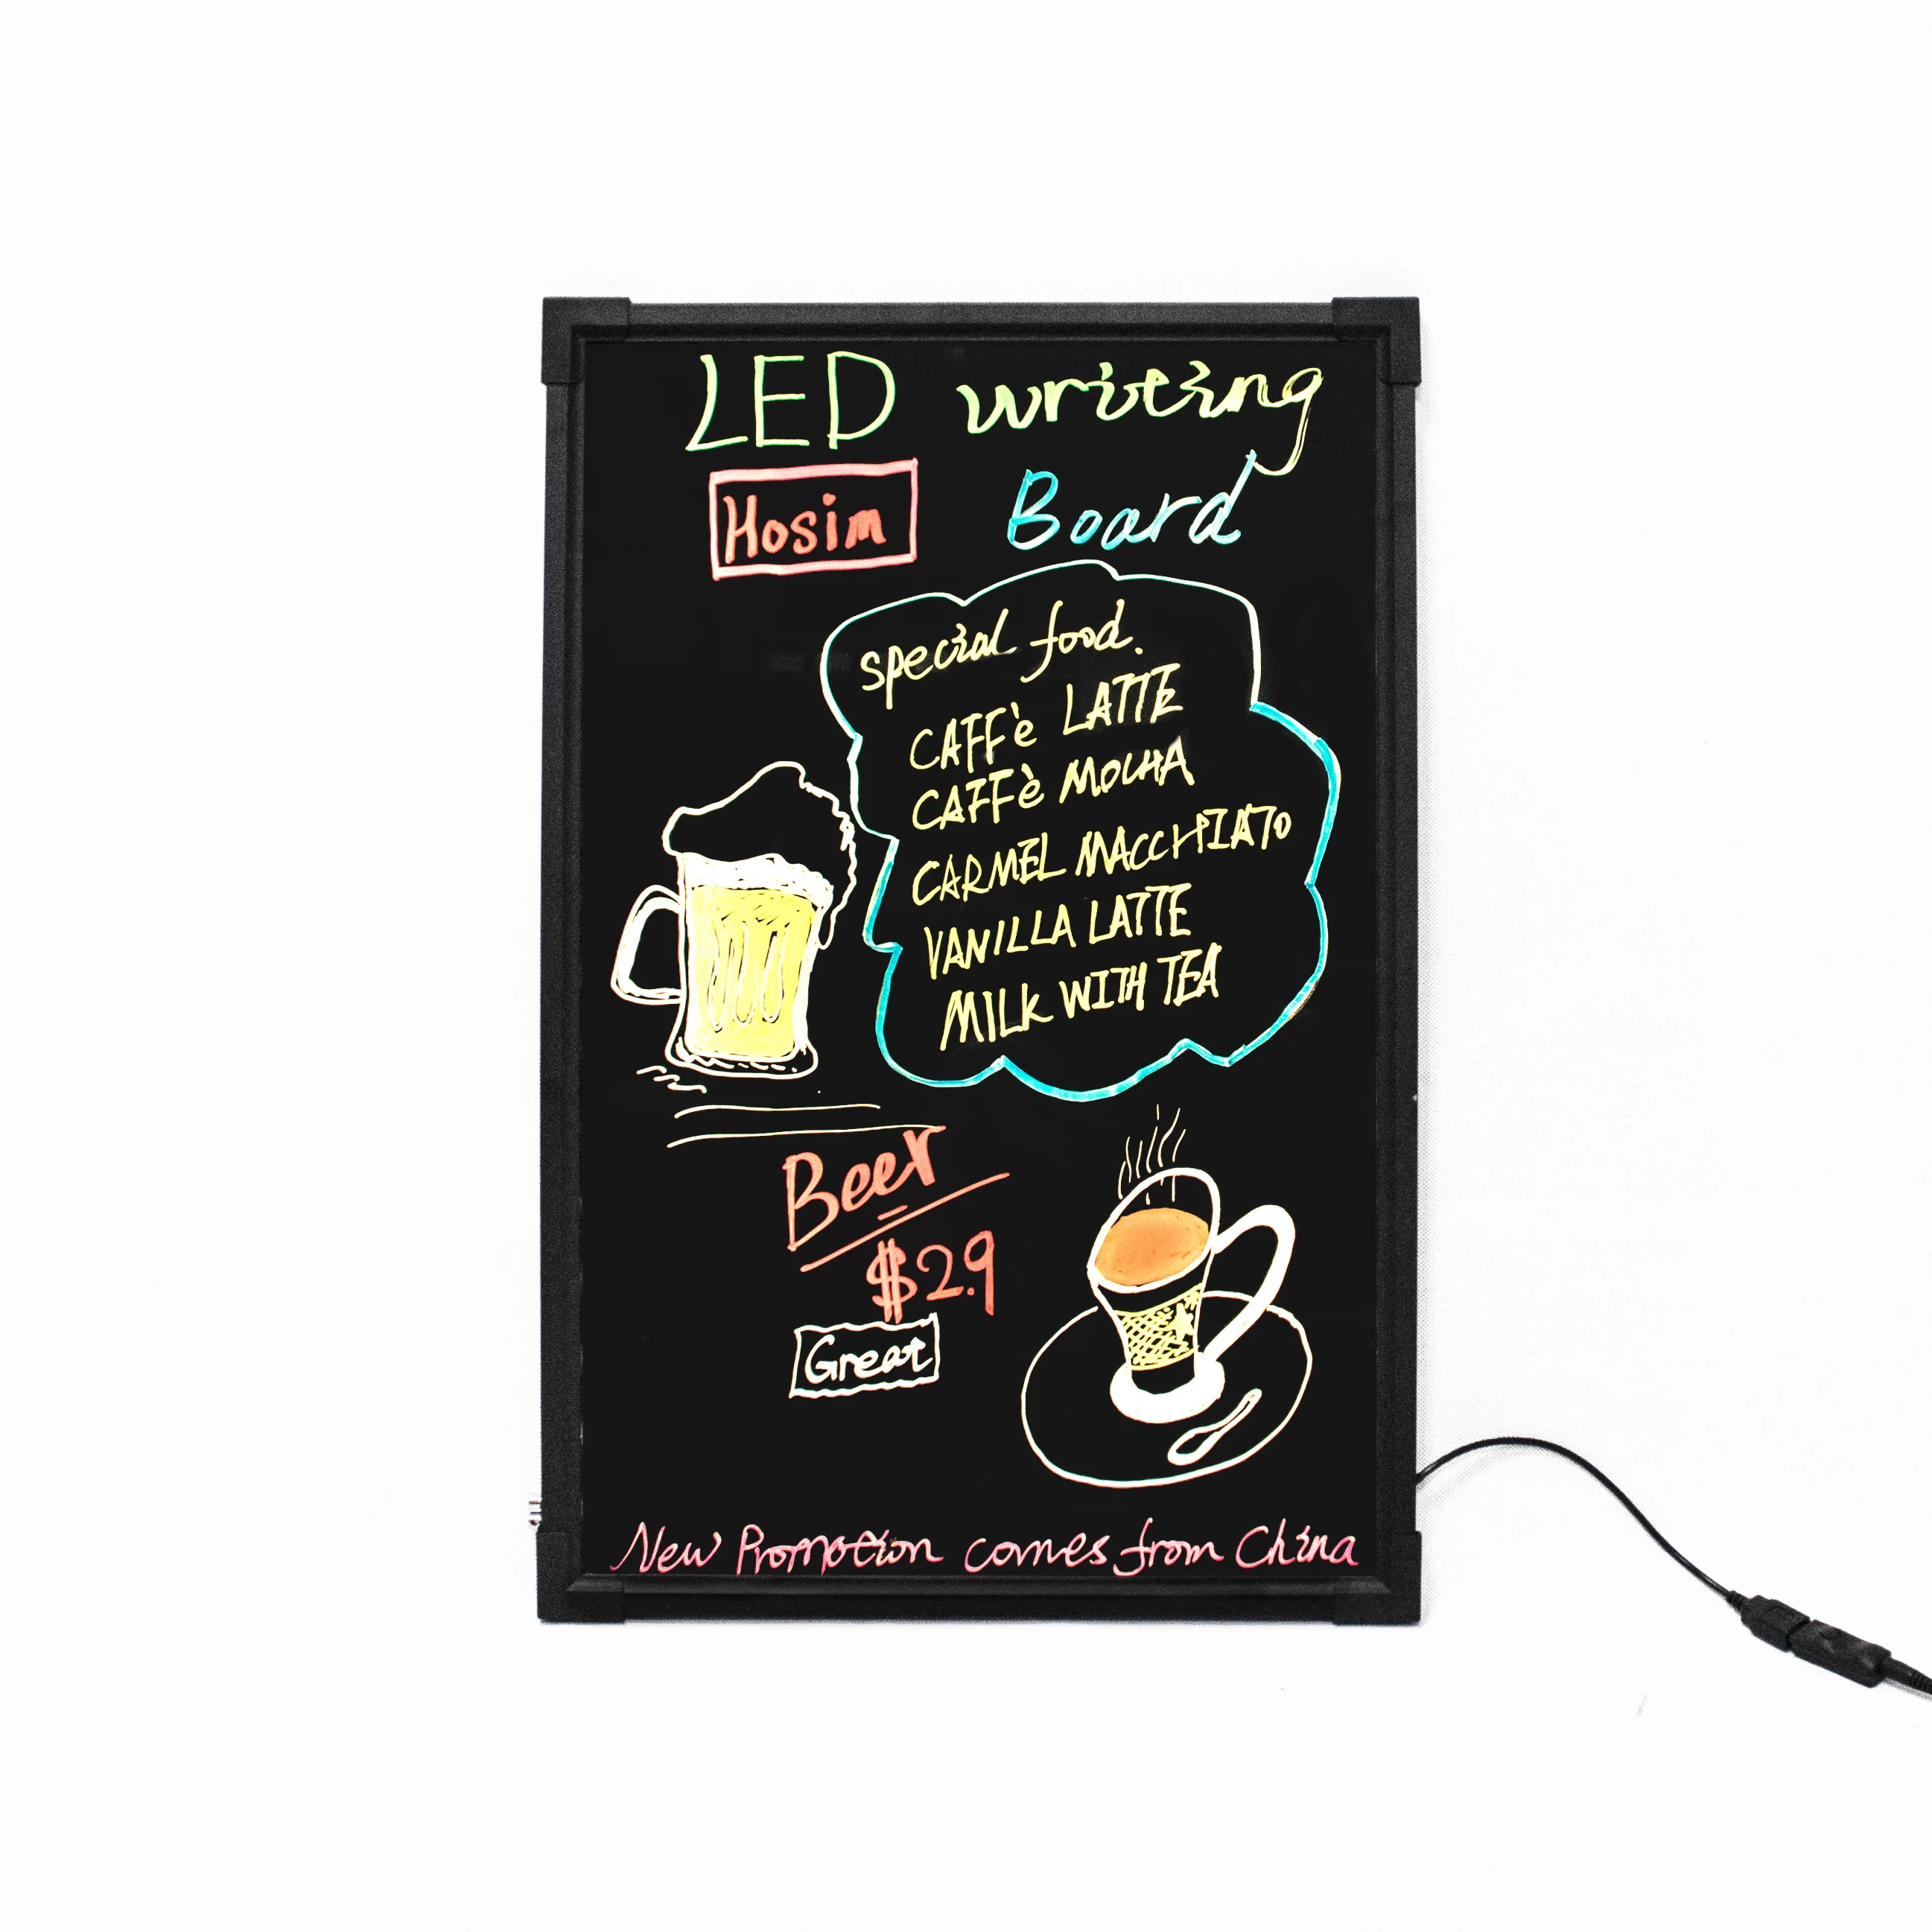 LED writing
Hosim Board
special food.
CAFFè LATTE
CAFFè MOCHA
CARMEL MACCHIATO
VANILLA LATTE
MILK WITH TEA
Beer
$2.9
Great
New Promotion comes from China